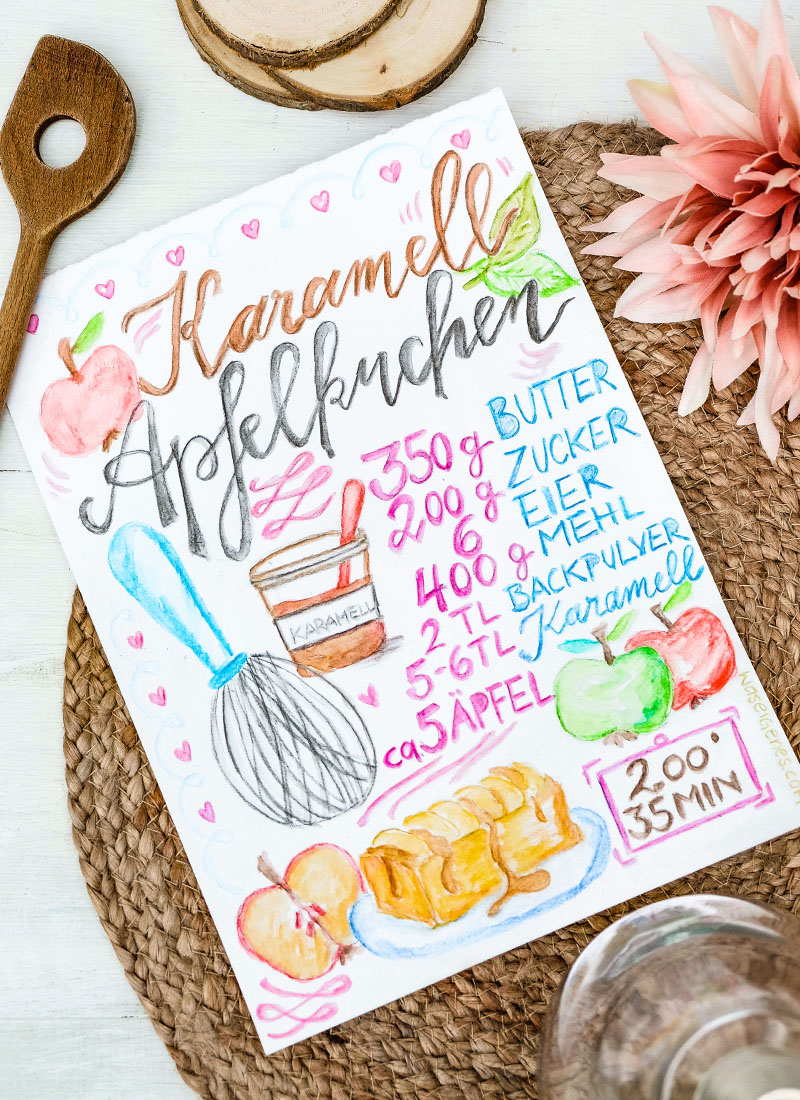 Karamell
Apfelkuchen
350 g BUTTER
200 g ZUCKER
6 EIER
400 g MEHL
2 TL BACKPULVER
5-6 TL Karamell
ca 5 ÄPFEL
KARAMELL
2.00°
35 MIN
waseigenes.com